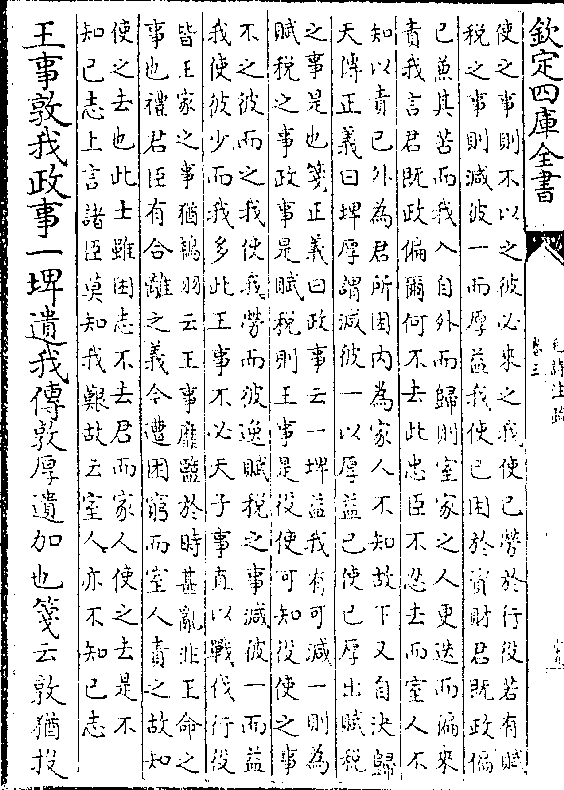 欽定四庫全書
毛詩注疏
卷三
使之事則不以之彼必來之我使已勞於行役若有賦
稅之事則減彼一而厚益我使已困於資財君既政偏
已兼其苦而我入自外而歸則室家之人更迭而徧來
責我言君既政偏爾何不去此忠臣不忍去而室人不
知以責已外為君所困內為家人不知故下又自決歸
天傳正義曰埤厚謂減彼一以厚益已使已厚出賦稅
之事是也箋正義曰政事云一埤益我有可減一則為
賦稅之事政事是賦稅則王事是役使可知役使之事
不之彼而之我使我勞而彼逸賦稅之事減彼一而益
我使彼少而我多此王事不必天子事直以戰伐行役
皆王家之事猶鴇羽云王事靡盬於時甚亂非王命之
事也禮君臣有合離之義令遭困窮而室人責之故知
使之去也此士雖困志不去君而家人使之去是不
知已志上言諸臣莫知我艱故云室人亦不知已志
王事敦我政事一埤遺我傳敦厚遺加也箋云敦猶投